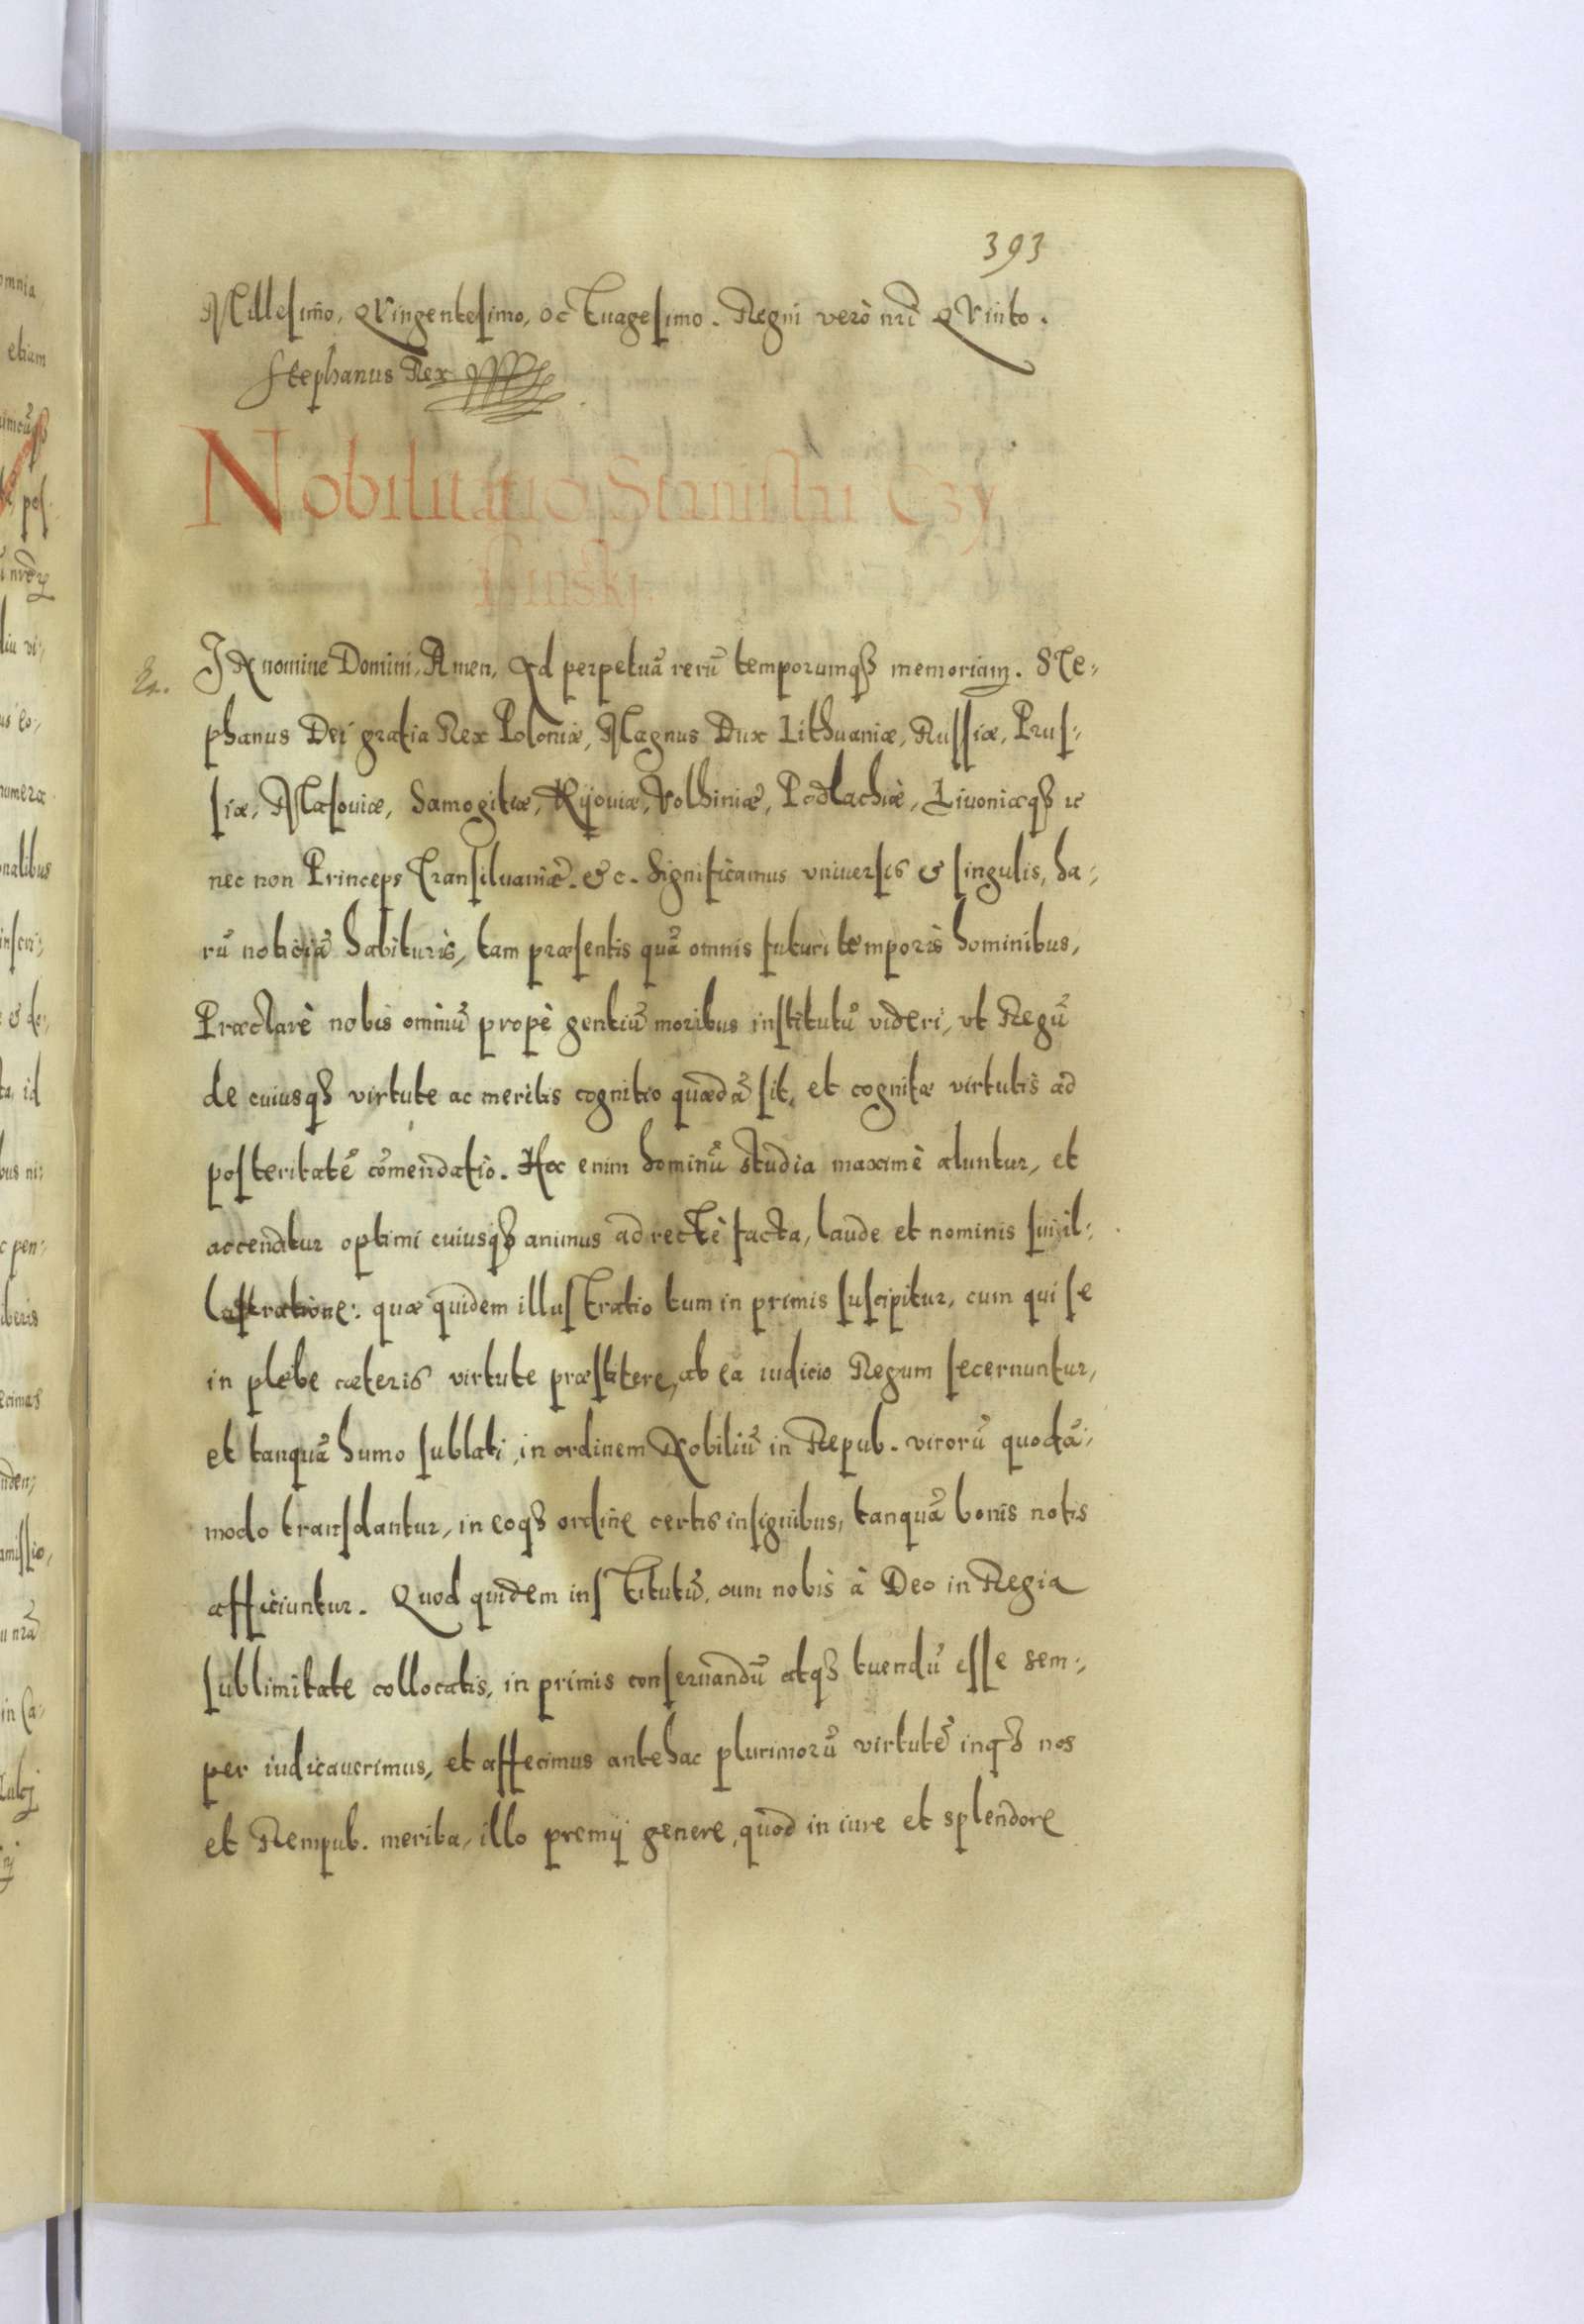 393
Millesimo, Qvingentesimo, octuagesimo. Regni verò nr̃i Qvinto.
Stephanus Rex
Nobilitatio Stanislai Czy
In nomine Domini, Amen, Ad perpetuã rerũ temporumq3 memoriam. Ste:
phanus Dei gratia Rex Poloniæ, Magnus Dux Lithuaniæ, Russiæ, Prus:
siæ, Masouiæ, Samogitiæ, Kijouiæ, Volhiniæ, Podlachiæ, Liuoniæq3 &c
nec non Princeps Transiluaniæ. &c. Significamus vniuersis & singulis, ha:
rũ noticiã habituris, tam præsentis quã omnis futuri temporis hominibus,
Præclarè nobis omniũ propè gentiũ moribus institutũ videri, vt Regũ
de cuiusq3 virtute ac meritis cognitio quædã sit, et cognitæ virtutis ad
posteritatẽ cõmendatio. Hac enim hominũ studia maximè aluntur, et
accenditur optimi cuiusq3 animus ad rectè facta, laude et nominis sui il:
lustratione: quæ quidem illustratio tum in primis suscipitur, cum qui se
in plebe cæteris virtute præstitere, ab ea iudicio Regum secernuntur,
et tanquã humo sublati, in ordinem Nobiliũ in Repub. virorũ quodã:
modo transdantur, in eoq3 ordine certis insignibus, tanquã bonis notis
afficiuntur. Quod quidem institutũ, cum nobis à Deo in Regia
sublimitate collocatis, in primis conseruandũ atq3 tuendũ esse sem:
per iudicauerimus, et affecimus antehac plurimorũ virtutẽ inq3 nos
et Rempub. merita, illo premij genere, quod in iure et splendore